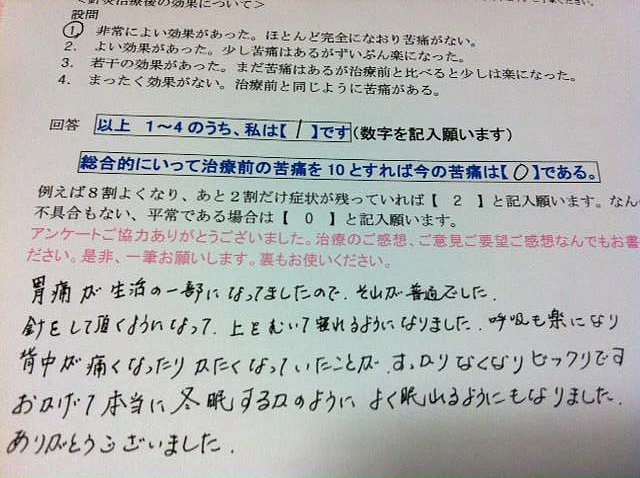 ＜針灸治療後の効果について＞
設問
1. 非常によい効果があった。ほとんど完全になおり苦痛がない。
2. よい効果があった。少し苦痛はあるがずいぶん楽になった。
3. 若干の効果があった。まだ苦痛はあるが治療前と比べると少しは楽になった。
4. まったく効果がない。治療前と同じように苦痛がある。
回答 以上 1～4のうち、私は【 1 】です(数字を記入願います)
総合的にいって治療前の苦痛を10とすれば今の苦痛は【 0 】である。
例えば8割よくなり、あと2割だけ症状が残っていれば【 2 】と記入願います。なん
不具合もない、平常である場合は【 0 】と記入願います。
アンケートご協力ありがとうございました。治療のご感想、ご意見ご要望ご感想なんでもお書
ださい。是非、一筆お願いします。裏もお使いください。
胃痛が生活の一部になってましたので、それが普通でした.
針をして頂くようになって、上をむいて寝れるようになりました. 呼吸も楽になり
背中が痛くなったりかたくなっていたことが、すっかりなくなりビックリです
おかげで本当に冬眠するかのようによく眠れるようにもなりました.
ありがとうございました.